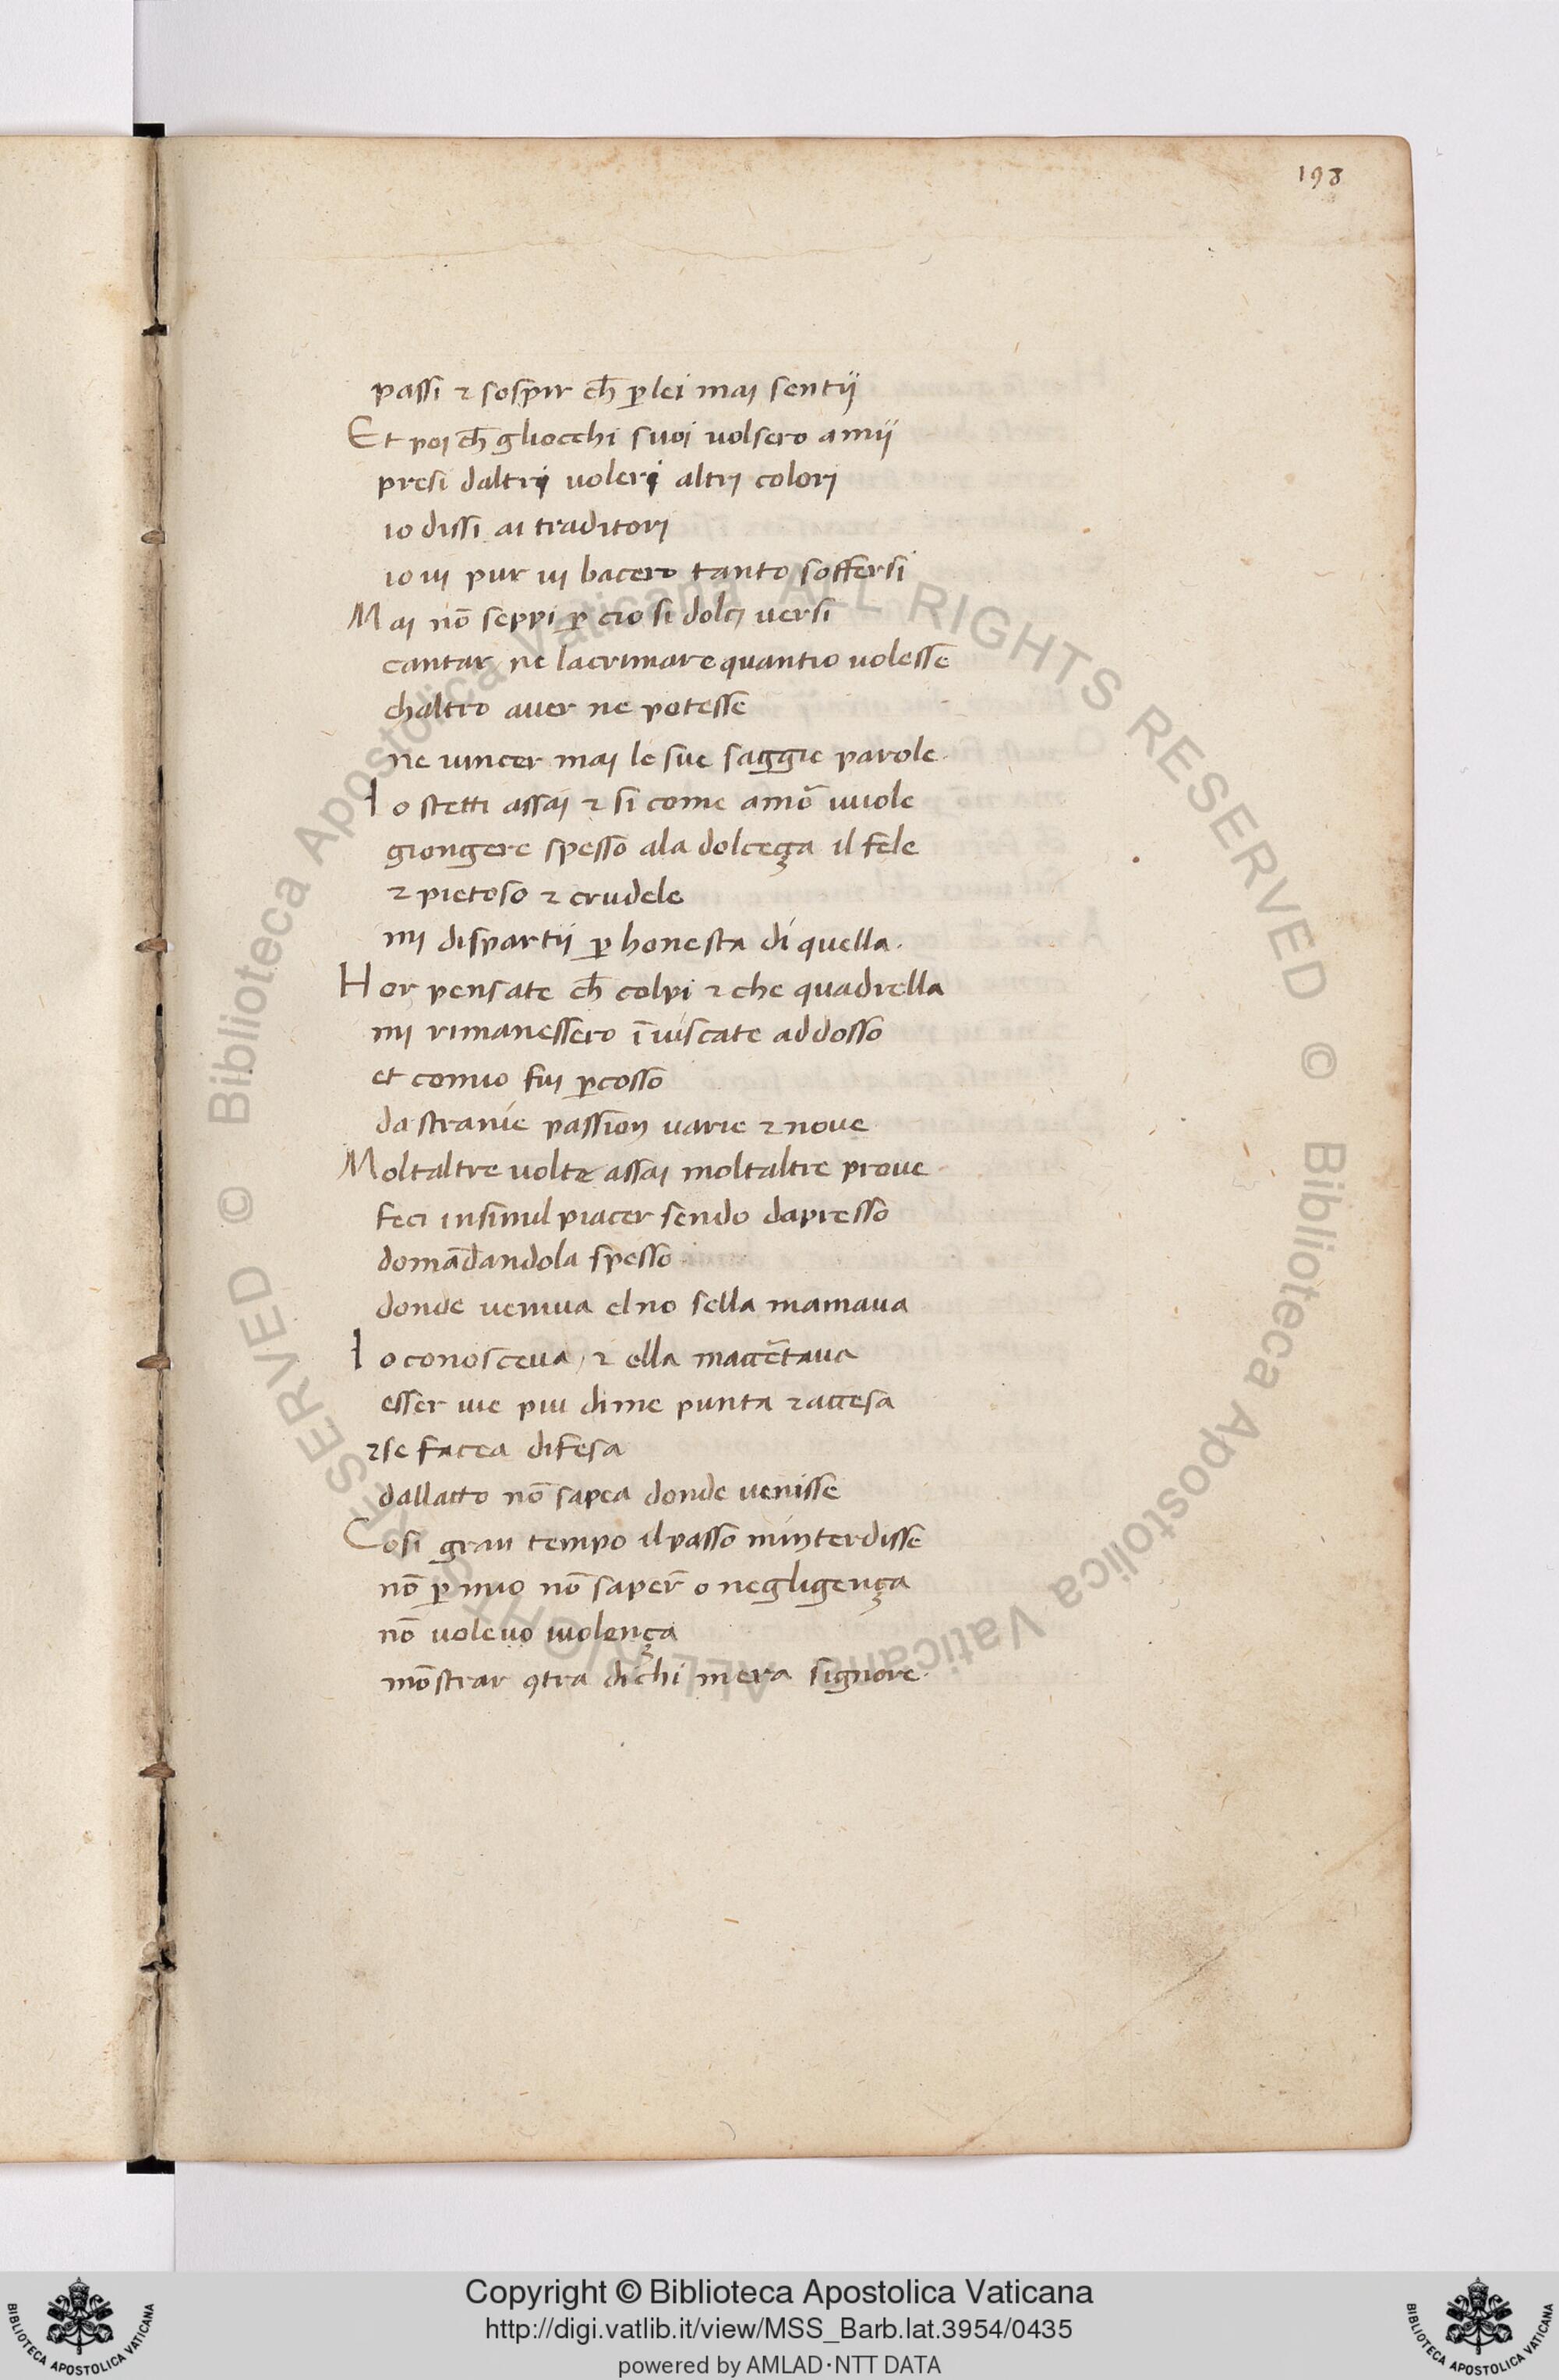 198
passi ⁊ sospir ch̄ ꝑ lei maj sentij
Et poj ch̄ gliocchi suoi uolsero amij
presi daltrj uolerj altrj colorj
io dissi ai traditorj
io uj pur uj bacero tanto soffersi
Maj nō seppi ꝑ cio si dolcj uersi
cantar ne lacrimare quantio uolesse
chaltro auer ne potesse
ne uincer maj le sue saggie parole.
Io stetti assaj ⁊ si come amō uuole
giongere spesso ala dolceça il fele
⁊ pietoso ⁊ crudele
mj dispartij ꝑ honesta di quella.
Hor pensate ch̄ colpi ⁊ che quadrella
mj rimanessero īuiscate addosso
et comio fuj ꝑcosso
da stranie passionj uarie ⁊ noue
Moltaltre uolte assaj moltaltre proue
feci insimul piacer sendo dapresso
domādandola spesso
donde ueniua elno sella mamaua
Io conosceua / ⁊ ella maccētaua
esser uie piu di me punta ⁊ accesa
⁊ se facea difesa
dallatto nō sapea donde uenisse
Cosi gran tempo il passo minterdisse
nō ꝑ mio nō saper̄ o negligença
nō uoleuo uiolença
mōstrar ꝯtra di chi mera signore.
Biblioteca Apostolica Vaticana ALL RIGHTS RESERVED © Biblioteca Apostolica Vaticana ALL RIGHTS RESERVED ©
Copyright © Biblioteca Apostolica Vaticana
http://digi.vatlib.it/view/MSS_Barb.lat.3954/0435
powered by AMLAD·NTT DATA
BIBLIOTECA APOSTOLICA VATICANA
BIBLIOTECA APOSTOLICA VATICANA